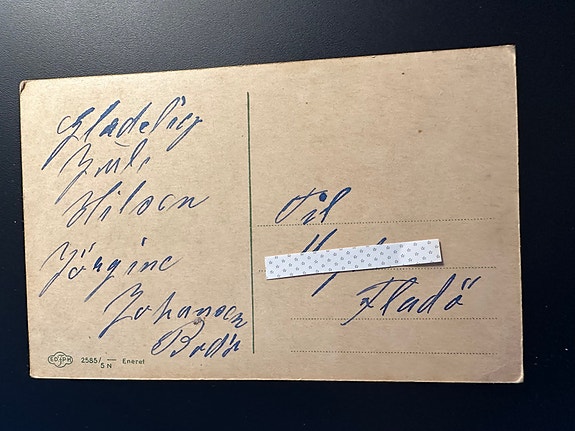 Gladelig
Jul
Hilsen
Jörgine
Johansen
Bodö
Til
Fladö
2585/5N Eneret